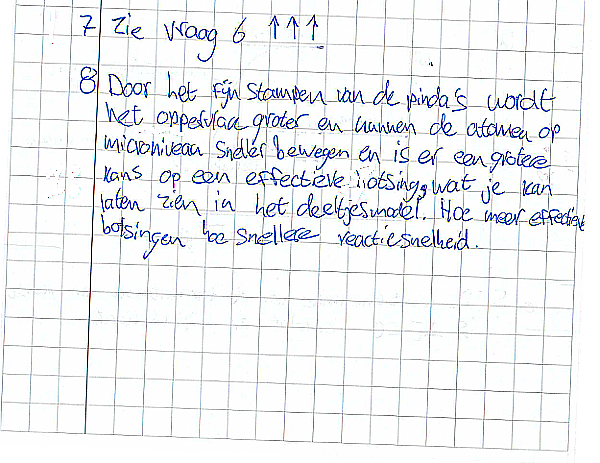 7 Zie vraag 6 ↑↑↑
8 Door het fijn stampen van de pinda's wordt
het oppervlak groter en kunnen de atomen op
microniveau sneller bewegen en is er een grotere
kans op een effectieve botsing, wat je kan
laten zien in het deeltjesmodel. Hoe meer effectieve
botsingen hoe snellere reactiesnelheid.